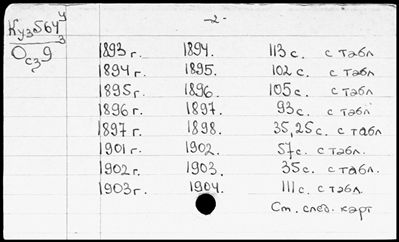 -2-
Куз564 у/3
Осз9
1893 г. 1894. 113 с. с табл
1894 г. 1895. 102 с. с табл.
1895 г. 1896. 105 с. с табл.
1896 г. 1897. 93 с. с табл.
1897 г. 1898. 35,25 с. с табл
1901 г. 1902. 57 с. с табл.
1902 г. 1903. 35 с. с табл.
1903 г. 1904. 111 с. с табл.
См. след. карт